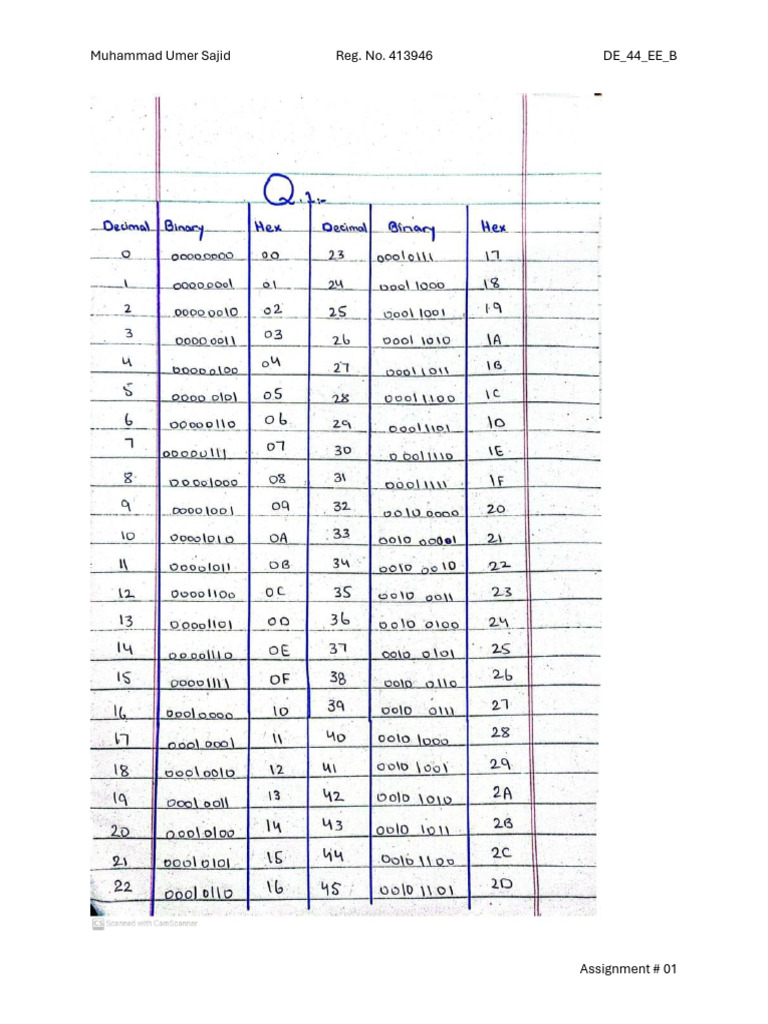 Muhammad Umer Sajid Reg. No. 413946 DE_44_EE_B
Q.1:-
Decimal Binary Hex Decimal Binary Hex
0 00000000 00 23 00010111 17
1 00000001 01 24 0001 1000 18
2 0000 0010 02 25 0001 1001 19
3 0000 0011 03 26 0001 1010 1A
4 00000100 04 27 00011011 1B
5 0000 0101 05 28 00011100 1C
6 00000110 06 29 00011101 1D
7 00000111 07 30 00011110 1E
8 00001000 08 31 00011111 1F
9 00001001 09 32 0010 0000 20
10 00001010 0A 33 0010 00001 21
11 00001011 0B 34 0010 0010 22
12 00001100 0C 35 0010 0011 23
13 00001101 0D 36 0010 0100 24
14 00001110 0E 37 0010 0101 25
15 00001111 0F 38 0010 0110 26
16 00010000 10 39 0010 0111 27
17 00010001 11 40 0010 1000 28
18 00010010 12 41 0010 1001 29
19 00010011 13 42 0010 1010 2A
20 00010100 14 43 0010 1011 2B
21 00010101 15 44 00101100 2C
22 00010110 16 45 0010 1101 2D
CS Scanned with CamScanner
Assignment # 01